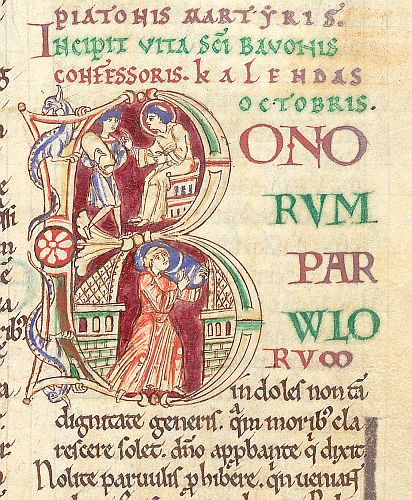 PIATONIS MARTYRIS.
INCIPIT VITA SCI BAVONIS
CONFESSORIS. KALENDAS
OCTOBRIS.
BONO
RVM
PAR
WLO
RVM
indoles non tā
dignitate generis. q̄m morib; cla
rescere solet. dn̄o app̄bante q̄ dixit
Nolite parvulis p̄hibere. q̄n veniant